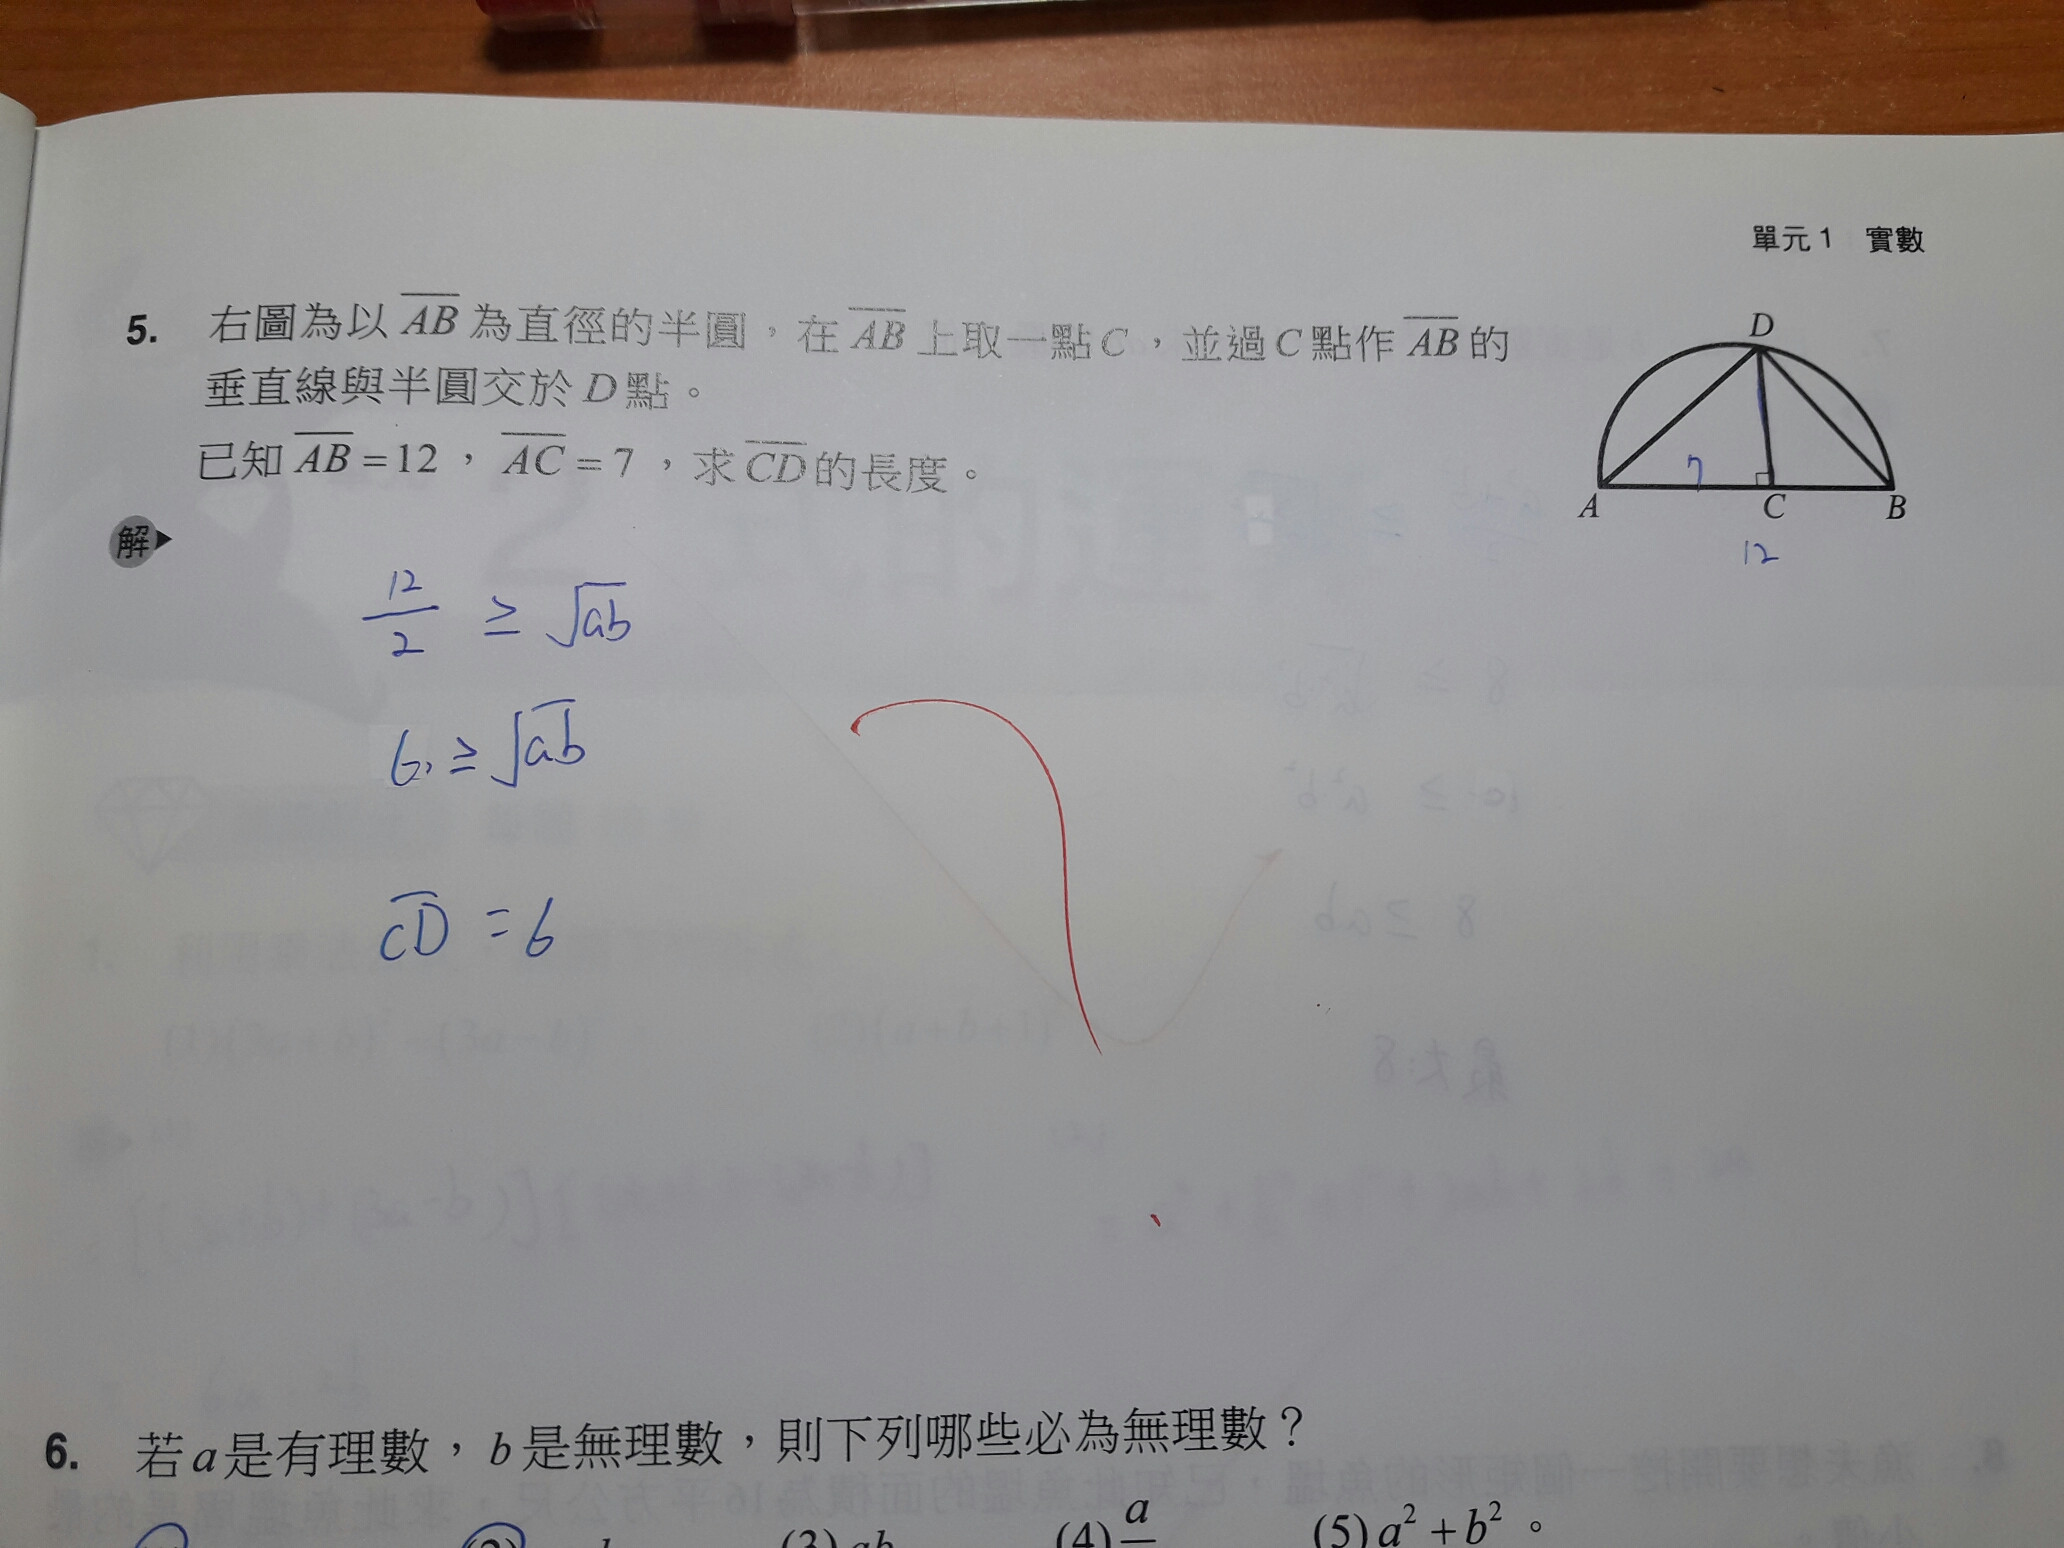 單元1 實數
5. 右圖為以 AB 為直徑的半圓，在 AB 上取一點 C，並過 C 點作 AB 的
垂直線與半圓交於 D 點。
已知 AB = 12，AC = 7，求 CD 的長度。
D
7
A C B
12
解
12/2 ≥ √ab
6 ≥ √ab
CD = 6
6. 若 a 是有理數，b 是無理數，則下列哪些必為無理數？
(2) (3) ab (4) a (5) a² + b²。